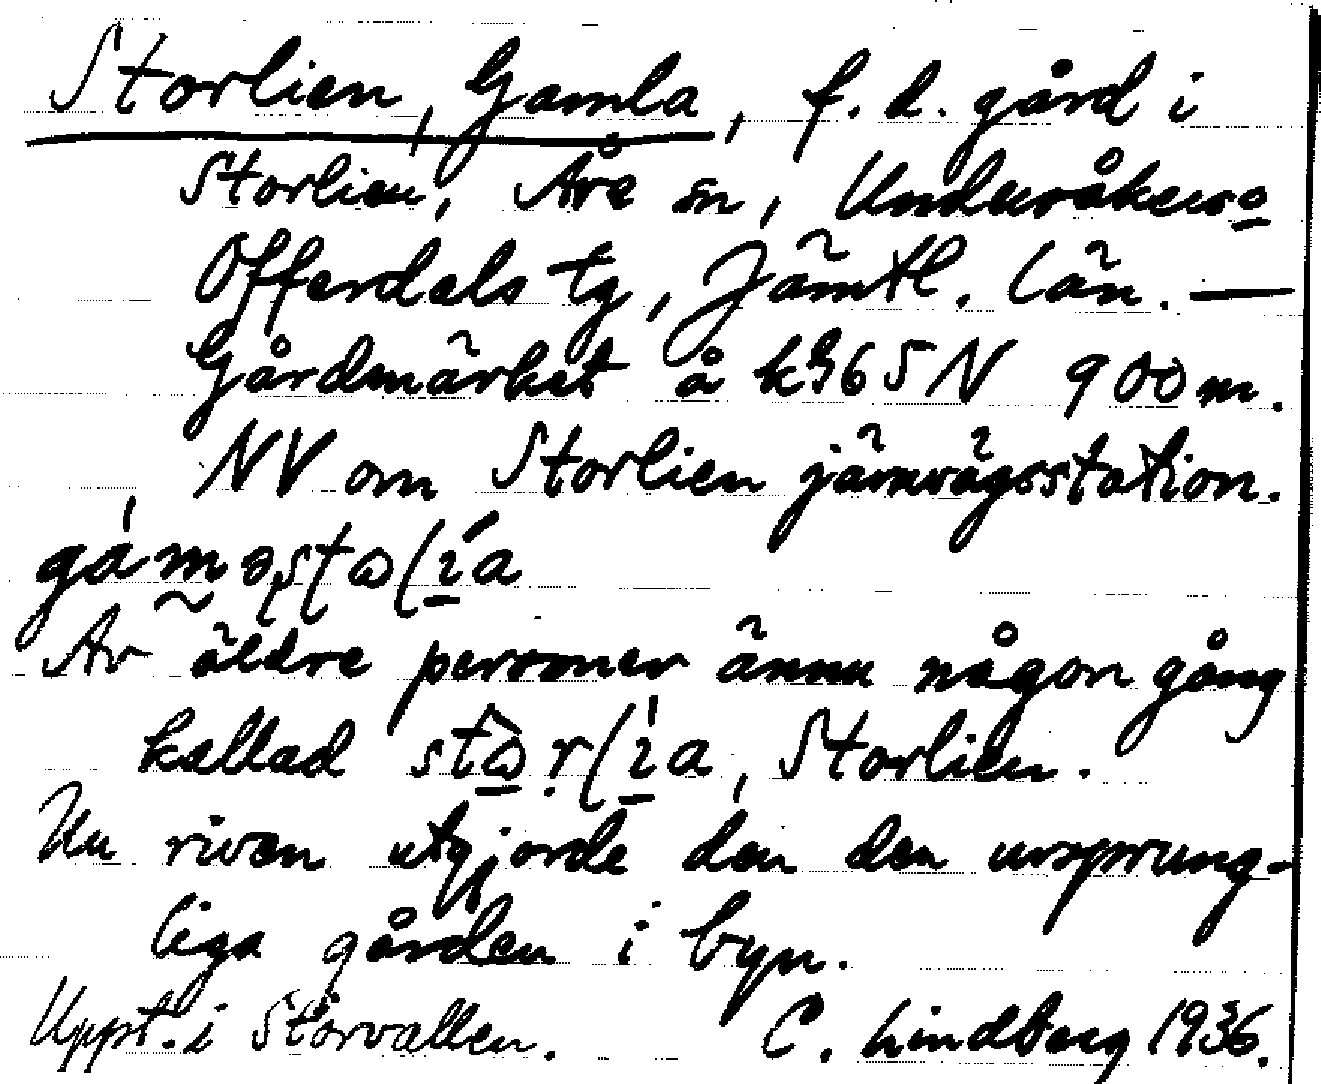 Storlien, Gamla, f. d. gård i
Storlien, Åre sn, Undersåkers o
Offerdals tg, Jämtl. län. —
Gårdmärket å k 365 N 900 m.
NV om Storlien järnvägsstation.
Av äldre personer ännu någon gång
kallad Storlien.
Nu riven utgjorde den den ursprung-
liga gården i byn.
Uppt. i Storvallen. C. Lindberg 1936.